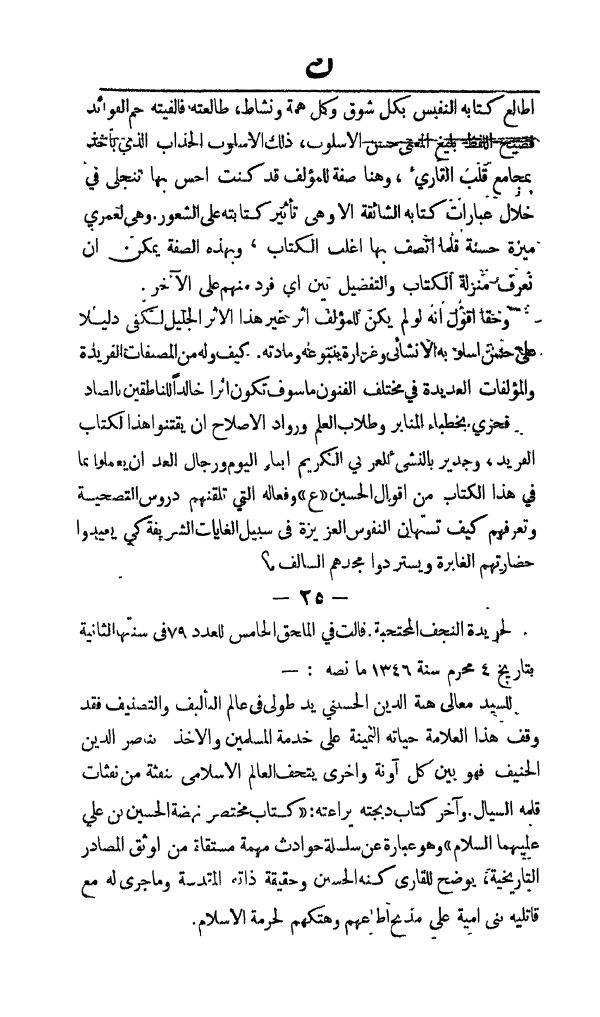 ن
اطالع كتابه النفيس بكل شوق وكل همة ونشاط، طالعته فالفيته جم الفوائد
فصيح اللفظ بليغ المعنى حسن الاسلوب، ذلك الاسلوب الجذاب الذي يأخذ
بمجامع قلب القاريء، وهنا صفة للمؤلف قد كنت احس بها تتجلى في
خلال عبارات كتابه الشائقة الا وهى تأثير كتابته على الشعور. وهى لعمري
ميزة حسنة قلما اتصف بها اغلب الكتاب، وبهذه الصفة يمكن ان
نعرف منزلة الكتاب والتفضيل بين اي فرد منهم على الآخر.
وحقا اقول انه لو لم يكن للمؤلف اثر غير هذا الاثر الجليل لكفى دليلا
على حسن اسلوبه الانشائى وغزارة ينبوعه ومادته. كيف وله من المصنفات الفريدة
والمؤلفات العديدة في مختلف الفنون ما سوف تكون اثرا خالداً للناطقين بالضاد
فحري بخطباء المنابر وطلاب العلم ورواد الاصلاح ان يقتنوا هذا الكتاب
الفريد، وجدير بالنشئ العربي الكريم ابناء اليوم ورجال الغد ان يعملوا بما
في هذا الكتاب من اقوال الحسين «ع» وفعاله التي تلقنهم دروس التضحية
وتعرفهم كيف تستهان النفوس العزيزة فى سبيل الغايات الشريفة كي يعيدوا
حضارتهم الغابرة ويستردوا مجدهم السالف؟
— ٢٥ —
لجريدة النجف المحتجبة. قالت في الملحق الخامس للعدد ٧٩ فى سنتها الثانية
بتاريخ ٤ محرم سنة ١٣٤٦ ما نصه : —
للسيد معالى هبة الدين الحسيني يد طولى فى عالم التأليف والتصنيف فقد
وقف هذا العلامة حياته الثمينة على خدمة المسلمين والاخذ بناصر الدين
الحنيف فهو بين كل آونة واخرى يتحف العالم الاسلامى بنفثة من نفثات
قلمه السيال. وآخر كتاب دبجته يراعته: «كتاب مختصر نهضة الحسين بن علي
عليهما السلام» وهو عبارة عن سلسلة حوادث مهمة مستقاة من اوثق المصادر
التاريخية، يوضح للقارى كنه الحسين وحقيقة ذاته المقدسة وماجرى له مع
قاتليه بنى امية علي مذبح اطماعهم وهتكهم لحرمة الاسلام.